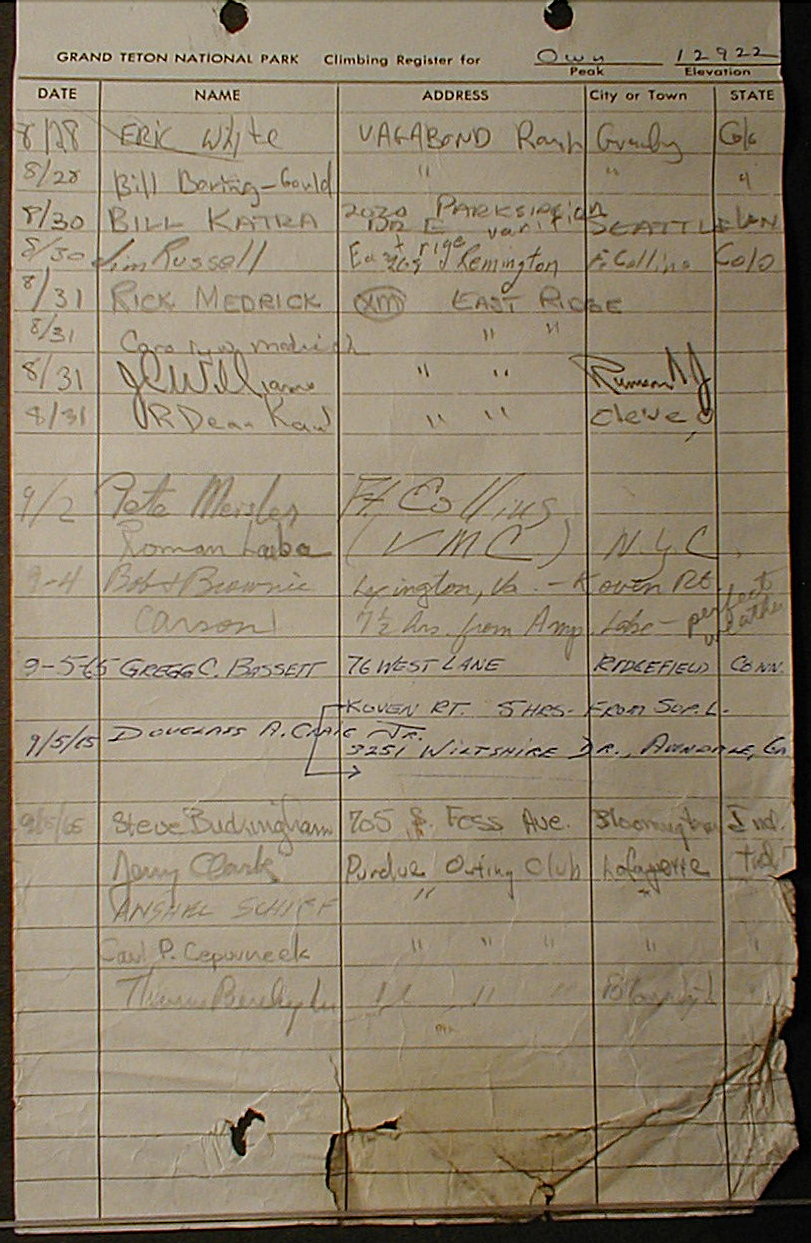 GRAND TETON NATIONAL PARK Climbing Register for Own 12922
Peak Elevation
DATE NAME ADDRESS City or Town STATE
8/28 ERIC White VAGABOND Ranch Granby Colo
8/28 Bill Baring-Gould " " "
8/30 BILL KATRA 2020 PARKSIDE DR E SEATTLE WN
8/30 Jim Russell East rige Remington F. Collins Colo
8/31 RICK MEDRICK EAST RIDGE
8/31 " "
8/31 JC Williams " "
8/31 R Dean " " Cleve O
9/2 Pete Ft Collins
Roman Laba (VMC) N.Y.C.
9-4 Bob & Brownie Lexington, Va. - Koven Rt.
Carson 7½ hrs. from Amp. Lake - perfect weather
9-5-65 GREGG C. BASSETT 76 WEST LANE RIDGEFIELD CONN.
KOVEN RT. 5 HRS. FROM SUR. L.
9/5/65 DOUGLASS A. CRAIG JR. 3251 WILTSHIRE DR., AVONDALE, Ga.
Steve Buckingham 705 S. Foss Ave. Bloomington Ind.
Jerry Clark Purdue Outing Club Lafayette Ind
ANSHEL SCHIFF " "
Carl P. " " " " "
Thomas " " "